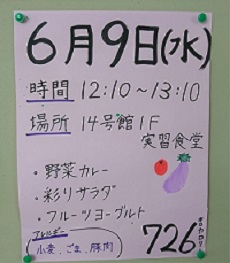 6月9日(水)
時間 12:10〜13:10
場所 14号館1F
実習食堂
・野菜カレー
・彩りサラダ
・フルーツヨーグルト
アレルギー
小麦、ごま、豚肉
726